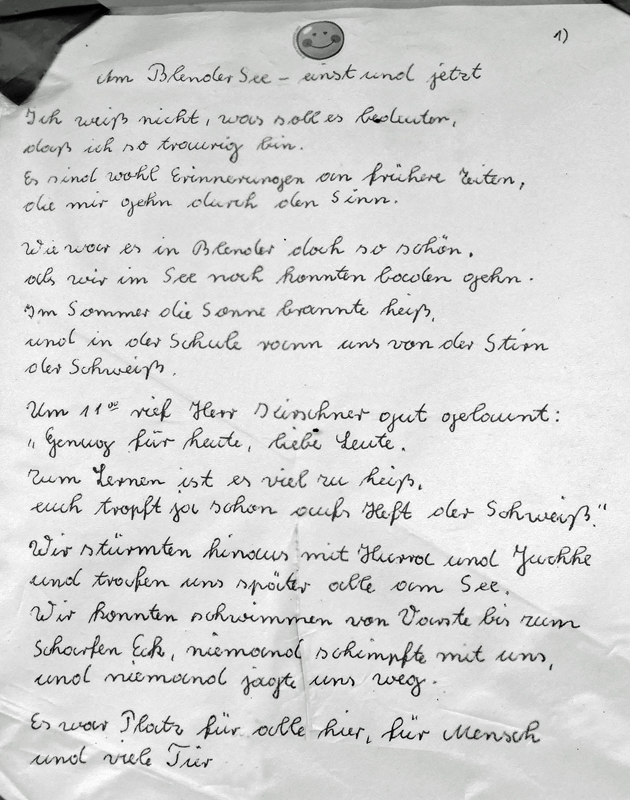 1)
Am Blender See – einst und jetzt
Ich weiß nicht, was soll es bedeuten,
daß ich so traurig bin.
Es sind wohl Erinnerungen an frühere Zeiten,
die mir gehn durch den Sinn.
Wie war es in Blender doch so schön,
als wir im See noch konnten baden gehn.
Im Sommer die Sonne brannte heiß,
und in der Schule rann uns von der Stirn
der Schweiß.
Um 11⁰⁰ rief Herr Dürschner gut gelaunt:
„Genug für heute, liebe Leute.
Zum Lernen ist es viel zu heiß,
euch tropft ja schon aufs Heft der Schweiß."
Wir stürmten hinaus mit Hurra und Juchhe
und trafen uns später alle am See.
Wir konnten schwimmen von Varste bis zum
Scharfen Eck, niemand schimpfte mit uns,
und niemand jagte uns weg.
Es war Platz für alle hier, für Mensch
und viele Tier